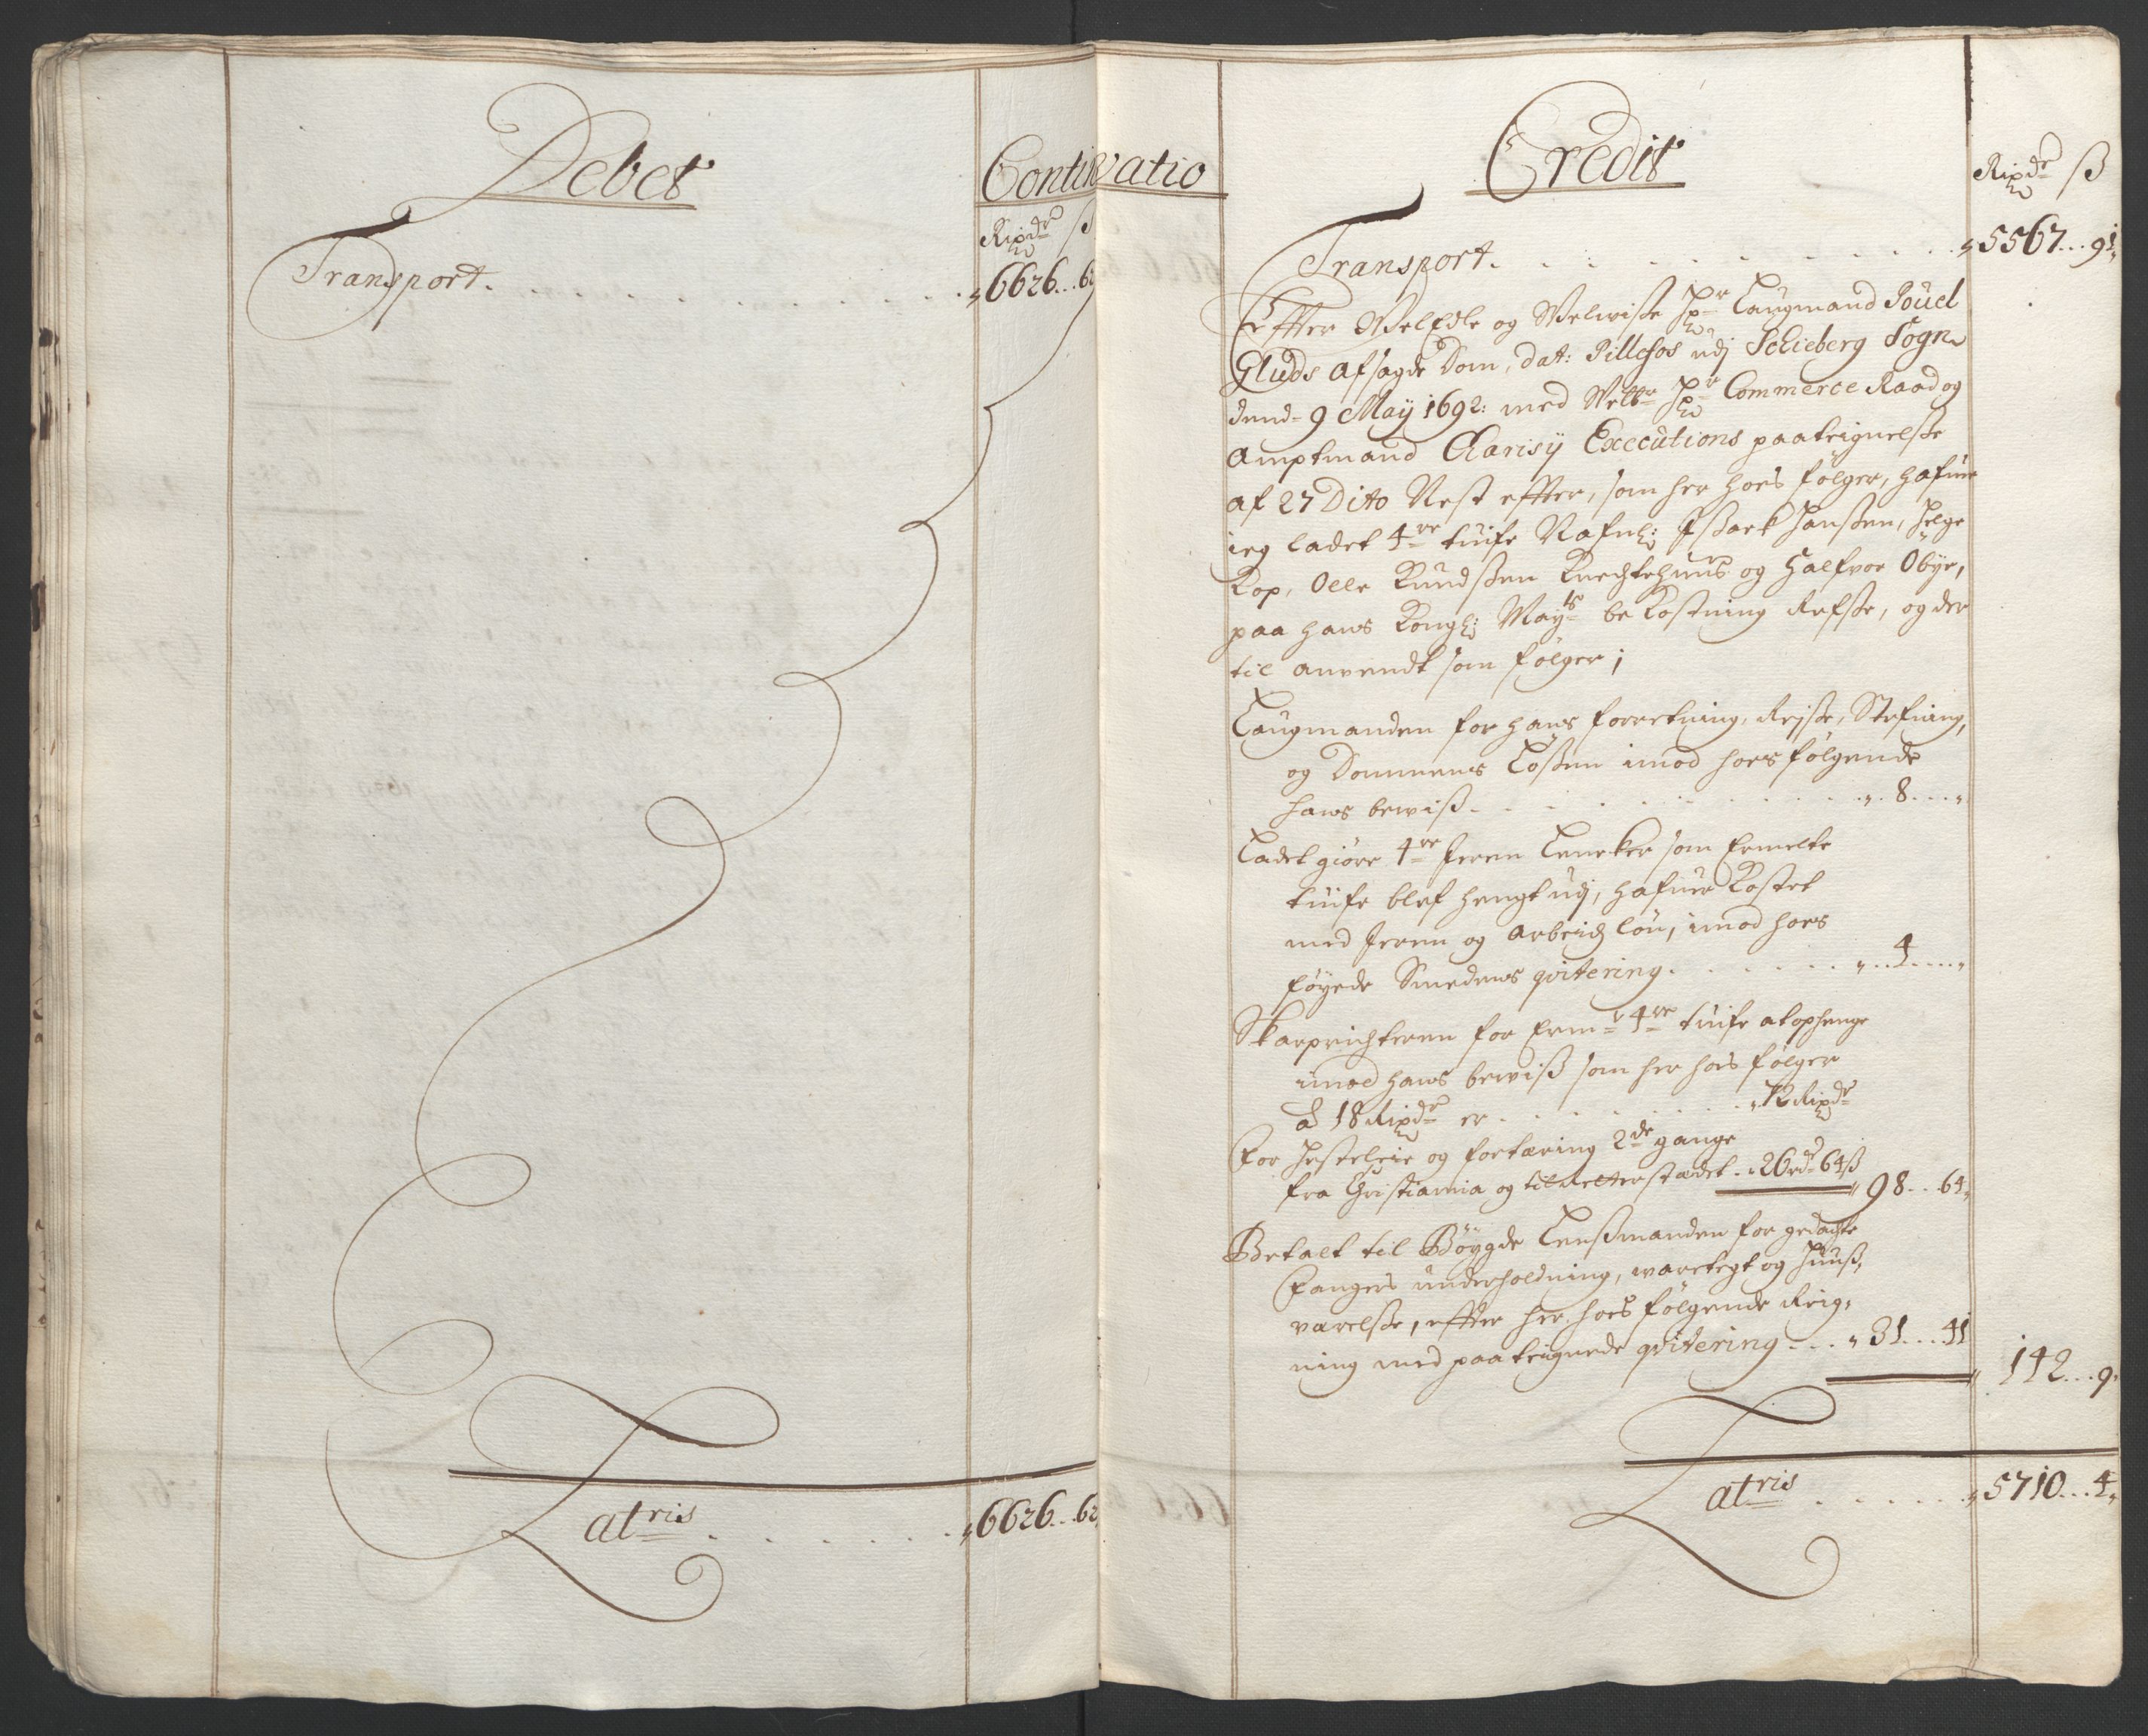 Debet
Continuatio
Rixdr ß
Transport. „6626...62
Latris „6626...62
Credit
Rixdr ß
Transport. „5567...91„
Effter WelEdle og Welwiße Hr Laugmand Pouel
Gluds afsagde Dom, dat: Pillehos udj Schieberg Sogn
dend 9 May 1692: med Welbr Hr Commerce Raad og
Amptmand Clarisÿ Executions paateignelße
af 27 Dito Nest effter, som her hoes følger, hafuer
ieg ladet 4re tiufe Nafnl: Jßack Hanßen, Helge
Kop, Olle Knudßen Knechtehuus og Halfvor Obye,
paa hans Kongl: Mayts bekostning Refße, og der
til anvendt som følger;
Laugmanden for hans forretning, Reyße, Stefning,
og Dommens Loßen imod hoesfølgende
hans bewiß „8....„
Ladet giøre 4re Jeren Lencker som Ermelte
tiufe blef hengt udj, hafuer Kostet
med Jeren og Arbeidz løn, imod hoes
føyede Smedens qvitering. „4....„
Skarprichteren for Ermr 4re tiufe at ophenge
imod hans bewiß som her hos følger
à 18 Rixdr er „72 Rixdr
For Hesteleie og fortæring 2de gange
fra Christiania og til Retterstædet „26 rdr 64 ß „98...64„
Betalt til Bøygde Lensmanden for gedachte
Fanges underholdning, waretegt og Huuß,
værelße, effter her hoes følgende Reig,
ning med paateignede qvitering „31...41
„142...9„
Latris „5710...4„